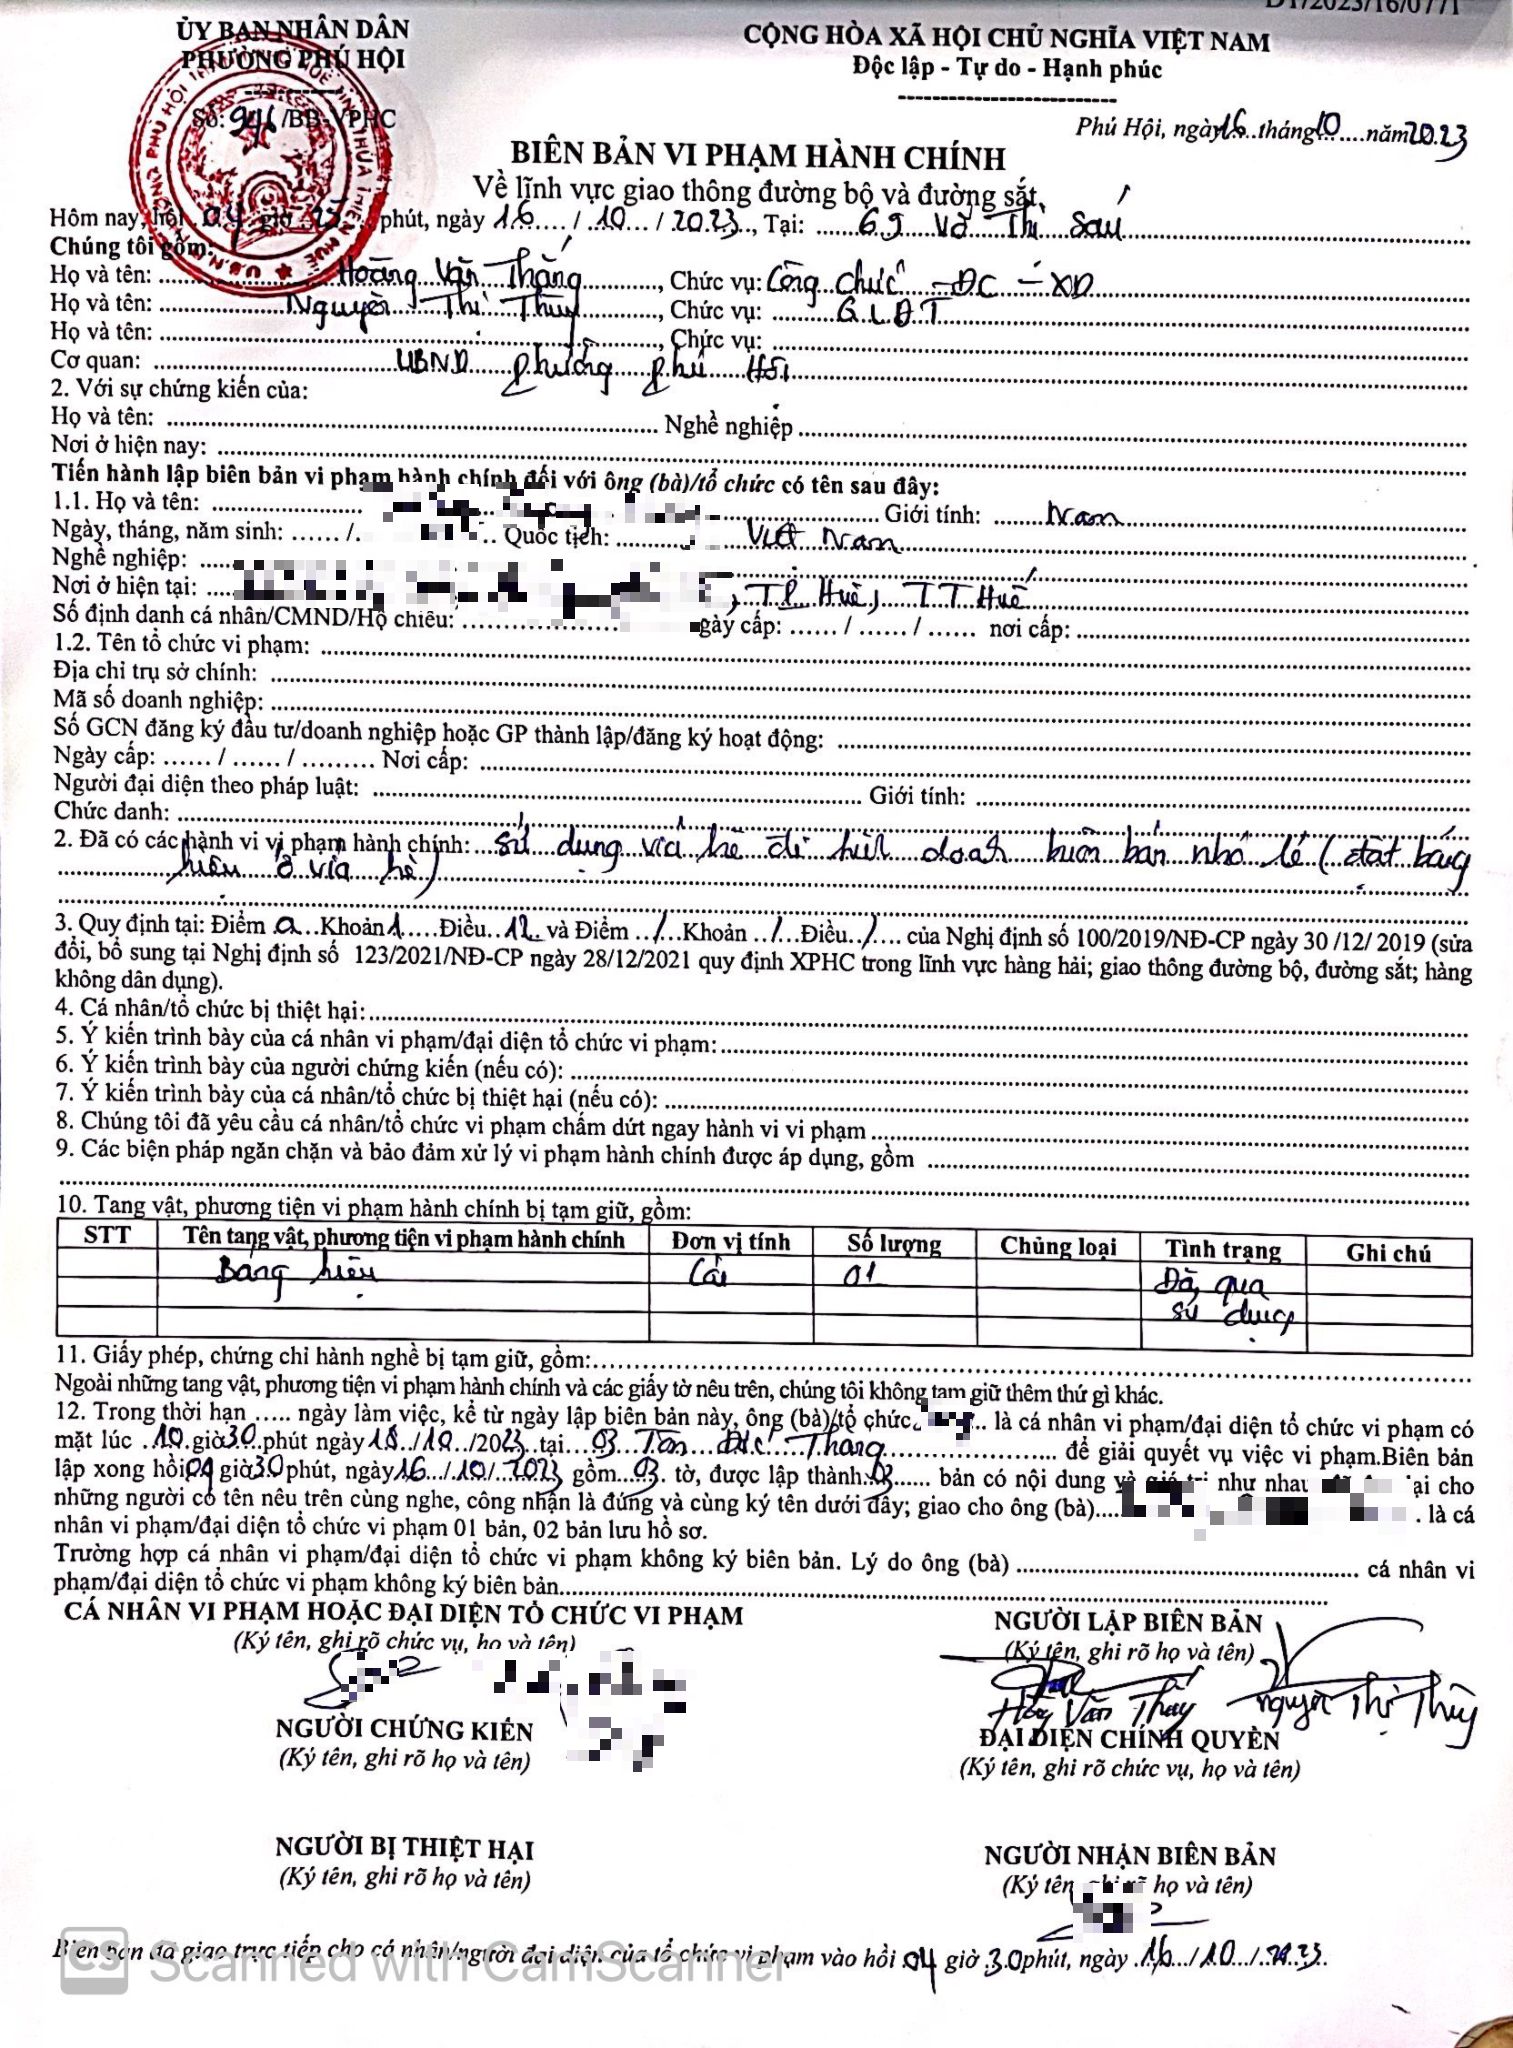 ĐT/2023/16/0771
ỦY BAN NHÂN DÂN
PHƯỜNG PHÚ HỘI
CỘNG HÒA XÃ HỘI CHỦ NGHĨA VIỆT NAM
Độc lập - Tự do - Hạnh phúc
Số: /BB-VPHC
Phú Hội, ngày 16 tháng 10 năm 2023
BIÊN BẢN VI PHẠM HÀNH CHÍNH
Về lĩnh vực giao thông đường bộ và đường sắt.
Hôm nay, hồi 04 giờ 25 phút, ngày 16 / 10 / 2023, Tại: 69 Võ Thị Sáu
Chúng tôi gồm:
Họ và tên: Hoàng Văn Thắng, Chức vụ: Công chức ĐC - XD
Họ và tên: Nguyễn Thị Thùy, Chức vụ: QLĐT
Họ và tên: , Chức vụ:
Cơ quan: UBND phường Phú Hội
2. Với sự chứng kiến của:
Họ và tên: Nghề nghiệp
Nơi ở hiện nay:
Tiến hành lập biên bản vi phạm hành chính đối với ông (bà)/tổ chức có tên sau đây:
1.1. Họ và tên: Giới tính: Nam
Ngày, tháng, năm sinh: ...... /. Quốc tịch: Việt Nam
Nghề nghiệp:
Nơi ở hiện tại: , TP Huế, TT Huế
Số định danh cá nhân/CMND/Hộ chiếu: gày cấp: ...... / ...... / ...... nơi cấp:
1.2. Tên tổ chức vi phạm:
Địa chỉ trụ sở chính:
Mã số doanh nghiệp:
Số GCN đăng ký đầu tư/doanh nghiệp hoặc GP thành lập/đăng ký hoạt động:
Ngày cấp: ...... / ...... / ......... Nơi cấp:
Người đại diện theo pháp luật: Giới tính:
Chức danh:
2. Đã có các hành vi vi phạm hành chính: sử dụng vỉa hè để kinh doanh buôn bán nhỏ lẻ (đặt bảng
hiệu ở vỉa hè)
3. Quy định tại: Điểm a Khoản 1 Điều 12 và Điểm / Khoản / Điều / của Nghị định số 100/2019/NĐ-CP ngày 30 /12/ 2019 (sửa
đổi, bổ sung tại Nghị định số 123/2021/NĐ-CP ngày 28/12/2021 quy định XPHC trong lĩnh vực hàng hải; giao thông đường bộ, đường sắt; hàng
không dân dụng).
4. Cá nhân/tổ chức bị thiệt hại:
5. Ý kiến trình bày của cá nhân vi phạm/đại diện tổ chức vi phạm:
6. Ý kiến trình bày của người chứng kiến (nếu có):
7. Ý kiến trình bày của cá nhân/tổ chức bị thiệt hại (nếu có):
8. Chúng tôi đã yêu cầu cá nhân/tổ chức vi phạm chấm dứt ngay hành vi vi phạm
9. Các biện pháp ngăn chặn và bảo đảm xử lý vi phạm hành chính được áp dụng, gồm
10. Tang vật, phương tiện vi phạm hành chính bị tạm giữ, gồm:
STT Tên tang vật, phương tiện vi phạm hành chính Đơn vị tính Số lượng Chủng loại Tình trạng Ghi chú
Bảng hiệu Cái 01 Đã qua
sử dụng
11. Giấy phép, chứng chỉ hành nghề bị tạm giữ, gồm:
Ngoài những tang vật, phương tiện vi phạm hành chính và các giấy tờ nêu trên, chúng tôi không tạm giữ thêm thứ gì khác.
12. Trong thời hạn ..... ngày làm việc, kể từ ngày lập biên bản này, ông (bà)/tổ chức là cá nhân vi phạm/đại diện tổ chức vi phạm có
mặt lúc 10 giờ 30 phút ngày 18/10/2023 tại 03 Tôn Đức Thắng để giải quyết vụ việc vi phạm.Biên bản
lập xong hồi 04 giờ 30 phút, ngày 16/10/2023 gồm 03 tờ, được lập thành 03 bản có nội dung và giá trị như nhau ại cho
những người có tên nêu trên cùng nghe, công nhận là đúng và cùng ký tên dưới đây; giao cho ông (bà) là cá
nhân vi phạm/đại diện tổ chức vi phạm 01 bản, 02 bản lưu hồ sơ.
Trường hợp cá nhân vi phạm/đại diện tổ chức vi phạm không ký biên bản. Lý do ông (bà) cá nhân vi
phạm/đại diện tổ chức vi phạm không ký biên bản
CÁ NHÂN VI PHẠM HOẶC ĐẠI DIỆN TỔ CHỨC VI PHẠM
(Ký tên, ghi rõ chức vụ, họ và tên)
NGƯỜI LẬP BIÊN BẢN
(Ký tên, ghi rõ họ và tên)
Hoàng Văn Thắng Nguyễn Thị Thùy
NGƯỜI CHỨNG KIẾN
(Ký tên, ghi rõ họ và tên)
ĐẠI DIỆN CHÍNH QUYỀN
(Ký tên, ghi rõ chức vụ, họ và tên)
NGƯỜI BỊ THIỆT HẠI
(Ký tên, ghi rõ họ và tên)
NGƯỜI NHẬN BIÊN BẢN
(Ký tên, ghi rõ họ và tên)
Biên bản đã giao trực tiếp cho cá nhân/người đại diện của tổ chức vi phạm vào hồi 04 giờ 30 phút, ngày 16/10/2023
CS Scanned with CamScanner